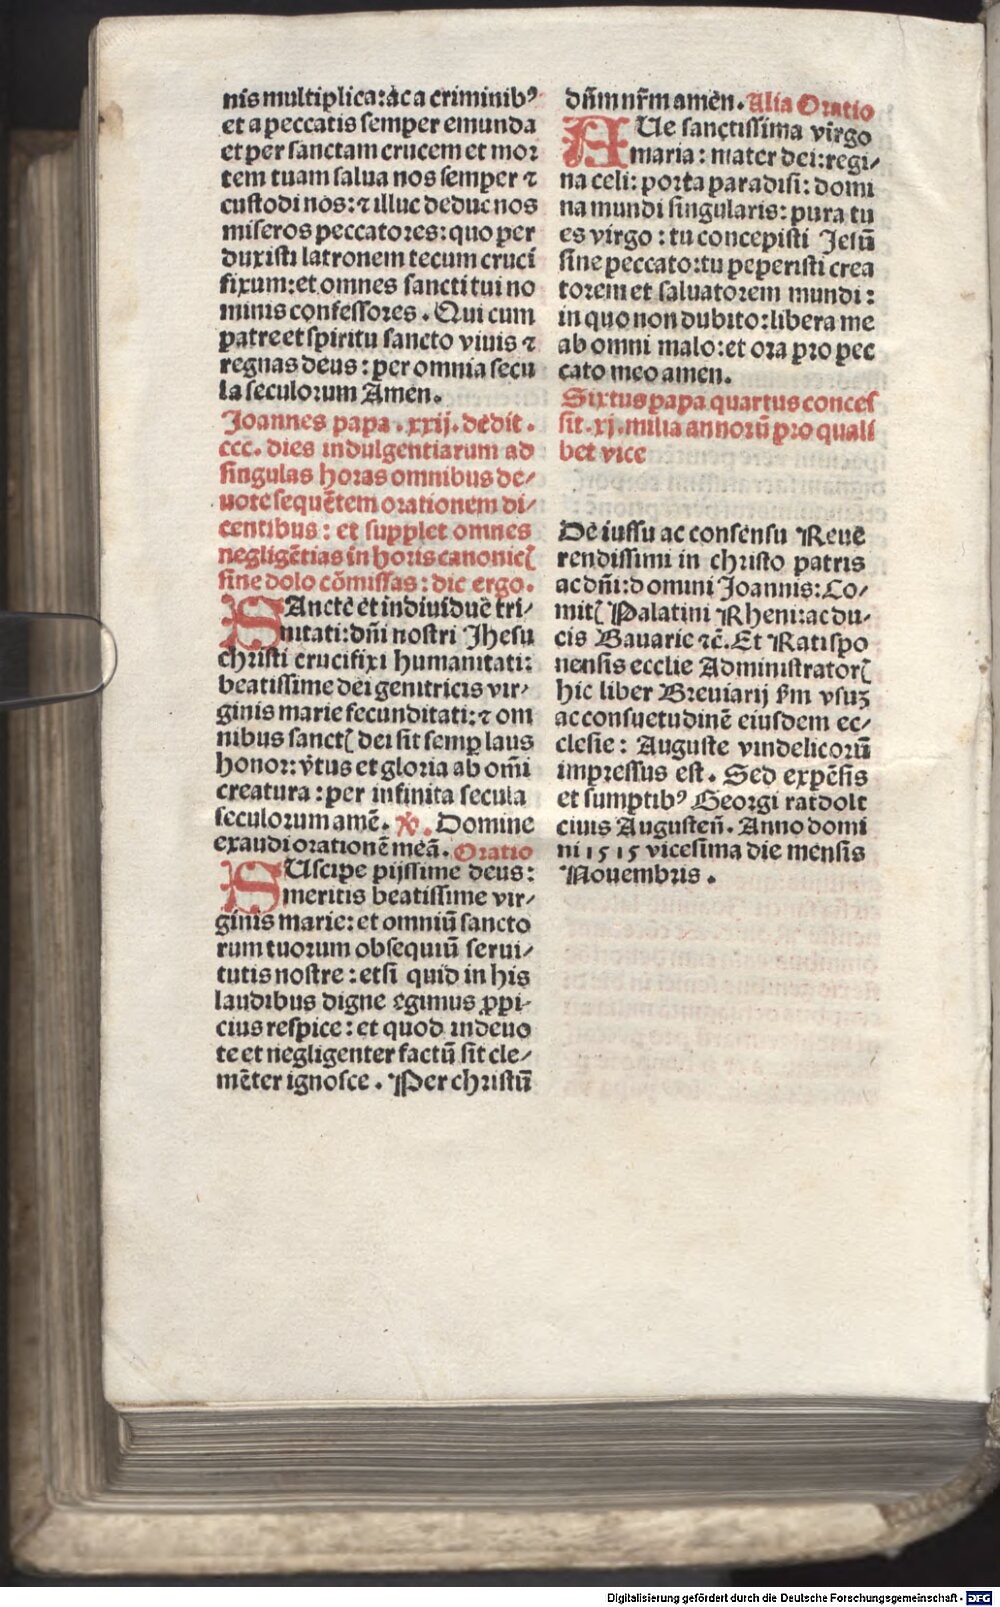 nis multiplica: ac a criminibꝰ
et a peccatis semper emunda
et per sanctam crucem et moꝛ
tem tuam salua nos semper ⁊
custodi nos: ⁊ illuc deduc nos
miseros peccatoꝛes: quo per
duxisti latronem tecum cruci
fixum: et omnes sancti tui no
minis confessoꝛes. Qui cum
patre et spiritu sancto viuis ⁊
regnas deus: per omnia secu
la seculoꝛum Amen.
Joannes papa. xxij. dedit.
ccc. dies indulgentiarum ad
singulas hoꝛas omnibus de⸗
uote sequētem oꝛationem di⸗
centibus: et supplet omnes
negligētias in hoꝛis canonicꝭ
sine dolo cōmissas: dic ergo.
SAncte et indiuidue tri⸗
nitati: dn̄i nostri Jhesu
chꝛisti crucifixi humanitati:
beatissime dei genitricis vir⸗
ginis marie fecunditati: ⁊ om
nibus sanctꝭ dei sit semꝑ laus
honoꝛ: v̄tus et gloꝛia ab om̄i
creatura: per infinita secula
seculoꝛum amē. ℣. Domine
exaudi oꝛationē meā. Oꝛatio
SUscipe pijssime deus:
meritis beatissime vir⸗
ginis marie: et omniū sancto
rum tuoꝛum obsequiū serui⸗
tutis nostre: et si quid in his
laudibus digne egimus ꝓpi⸗
cius respice: et quod indeuo
te et negligenter factū sit cle⸗
mēter ignosce. Per chꝛistū
dn̄m nr̄m amen. Alia Oꝛatio
AUe sanctissima virgo
maria: mater dei: regi⸗
na celi: poꝛta paradisi: domi
na mundi singularis: pura tu
es virgo: tu concepisti Jesū
sine peccato: tu peperisti crea
toꝛem et saluatoꝛem mundi:
in quo non dubito: libera me
ab omni malo: et oꝛa pꝛo pec
cato meo amen.
Sixtus papa quartus conces
sit. xj. milia annoꝛū pꝛo quali
bet vice
De iussu ac consensu Reue
rendissimi in chꝛisto patris
ac dn̄i: domini Joannis: Co⸗
mitꝭ Palatini Rheni: ac du⸗
cis Bauarie ⁊c̄. Et Ratispo
nensis ecclie Administratoꝛꝭ
hic liber Bꝛeuiarij ẜm vsuꝫ
ac consuetudinē eiusdem ec⸗
clesie: Auguste vindelicoꝛū
impꝛessus est. Sed expēsis
et sumptibꝰ Geoꝛgi ratdolt
ciuis Augusten̄. Anno domi
ni 1515 vicesima die mensis
Nouembꝛis.
Digitalisierung gefördert durch die Deutsche Forschungsgemeinschaft - DFG